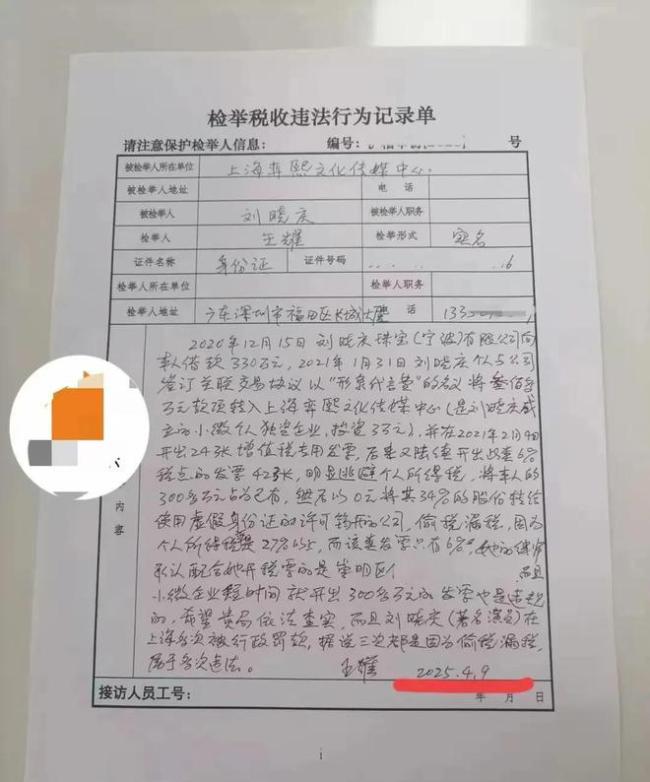 检举税收违法行为记录单
请注意保护检举人信息： 编号： 号
被检举人所在单位 上海弈熙文化传媒中心.
被检举人地址 电 话
被检举人 刘晓庆 被检举人职务
检举人 王耀 检举形式 实名
证件名称 身份证 证件号码 6
检举人所在单位 检举人职务
检举人地址 广东深圳市福田区长城大厦 话 133
2020年12月15日刘晓庆珠宝(宁波)有限公司向
本人借款330万元，2021年1月31日刘晓庆个人与公司
签订关联交易协议以“形象代言费”的名义将叁佰多
万元款项转入上海弈熙文化传媒中心(是刘晓庆成
立的小微个人独资企业，投资3万元)，并在2021年2月9日
开出24张增值税专用发票，后来又陆续开出 6%
税点的发票42张，明显逃避个人所得税，将本人的
300多万元占为己有，然后以0元将其34%的股份转给
使用虚假身份证的许可 的公司，偷税漏税，因为
个人所得税是27%以上，而该类发票只有6%，她的律师
承认配合她开税票的是崇明区 而且
小微企业短时间就开出300多万元的发票也是违规
的，希望贵局依法查实，而且刘晓庆(著名演员)在
上海多次被行政罚款，据说三次都是因为偷税漏税，
属于多次违法。 王耀 2025.4.9
内容
接访人员工号： 年 月 日